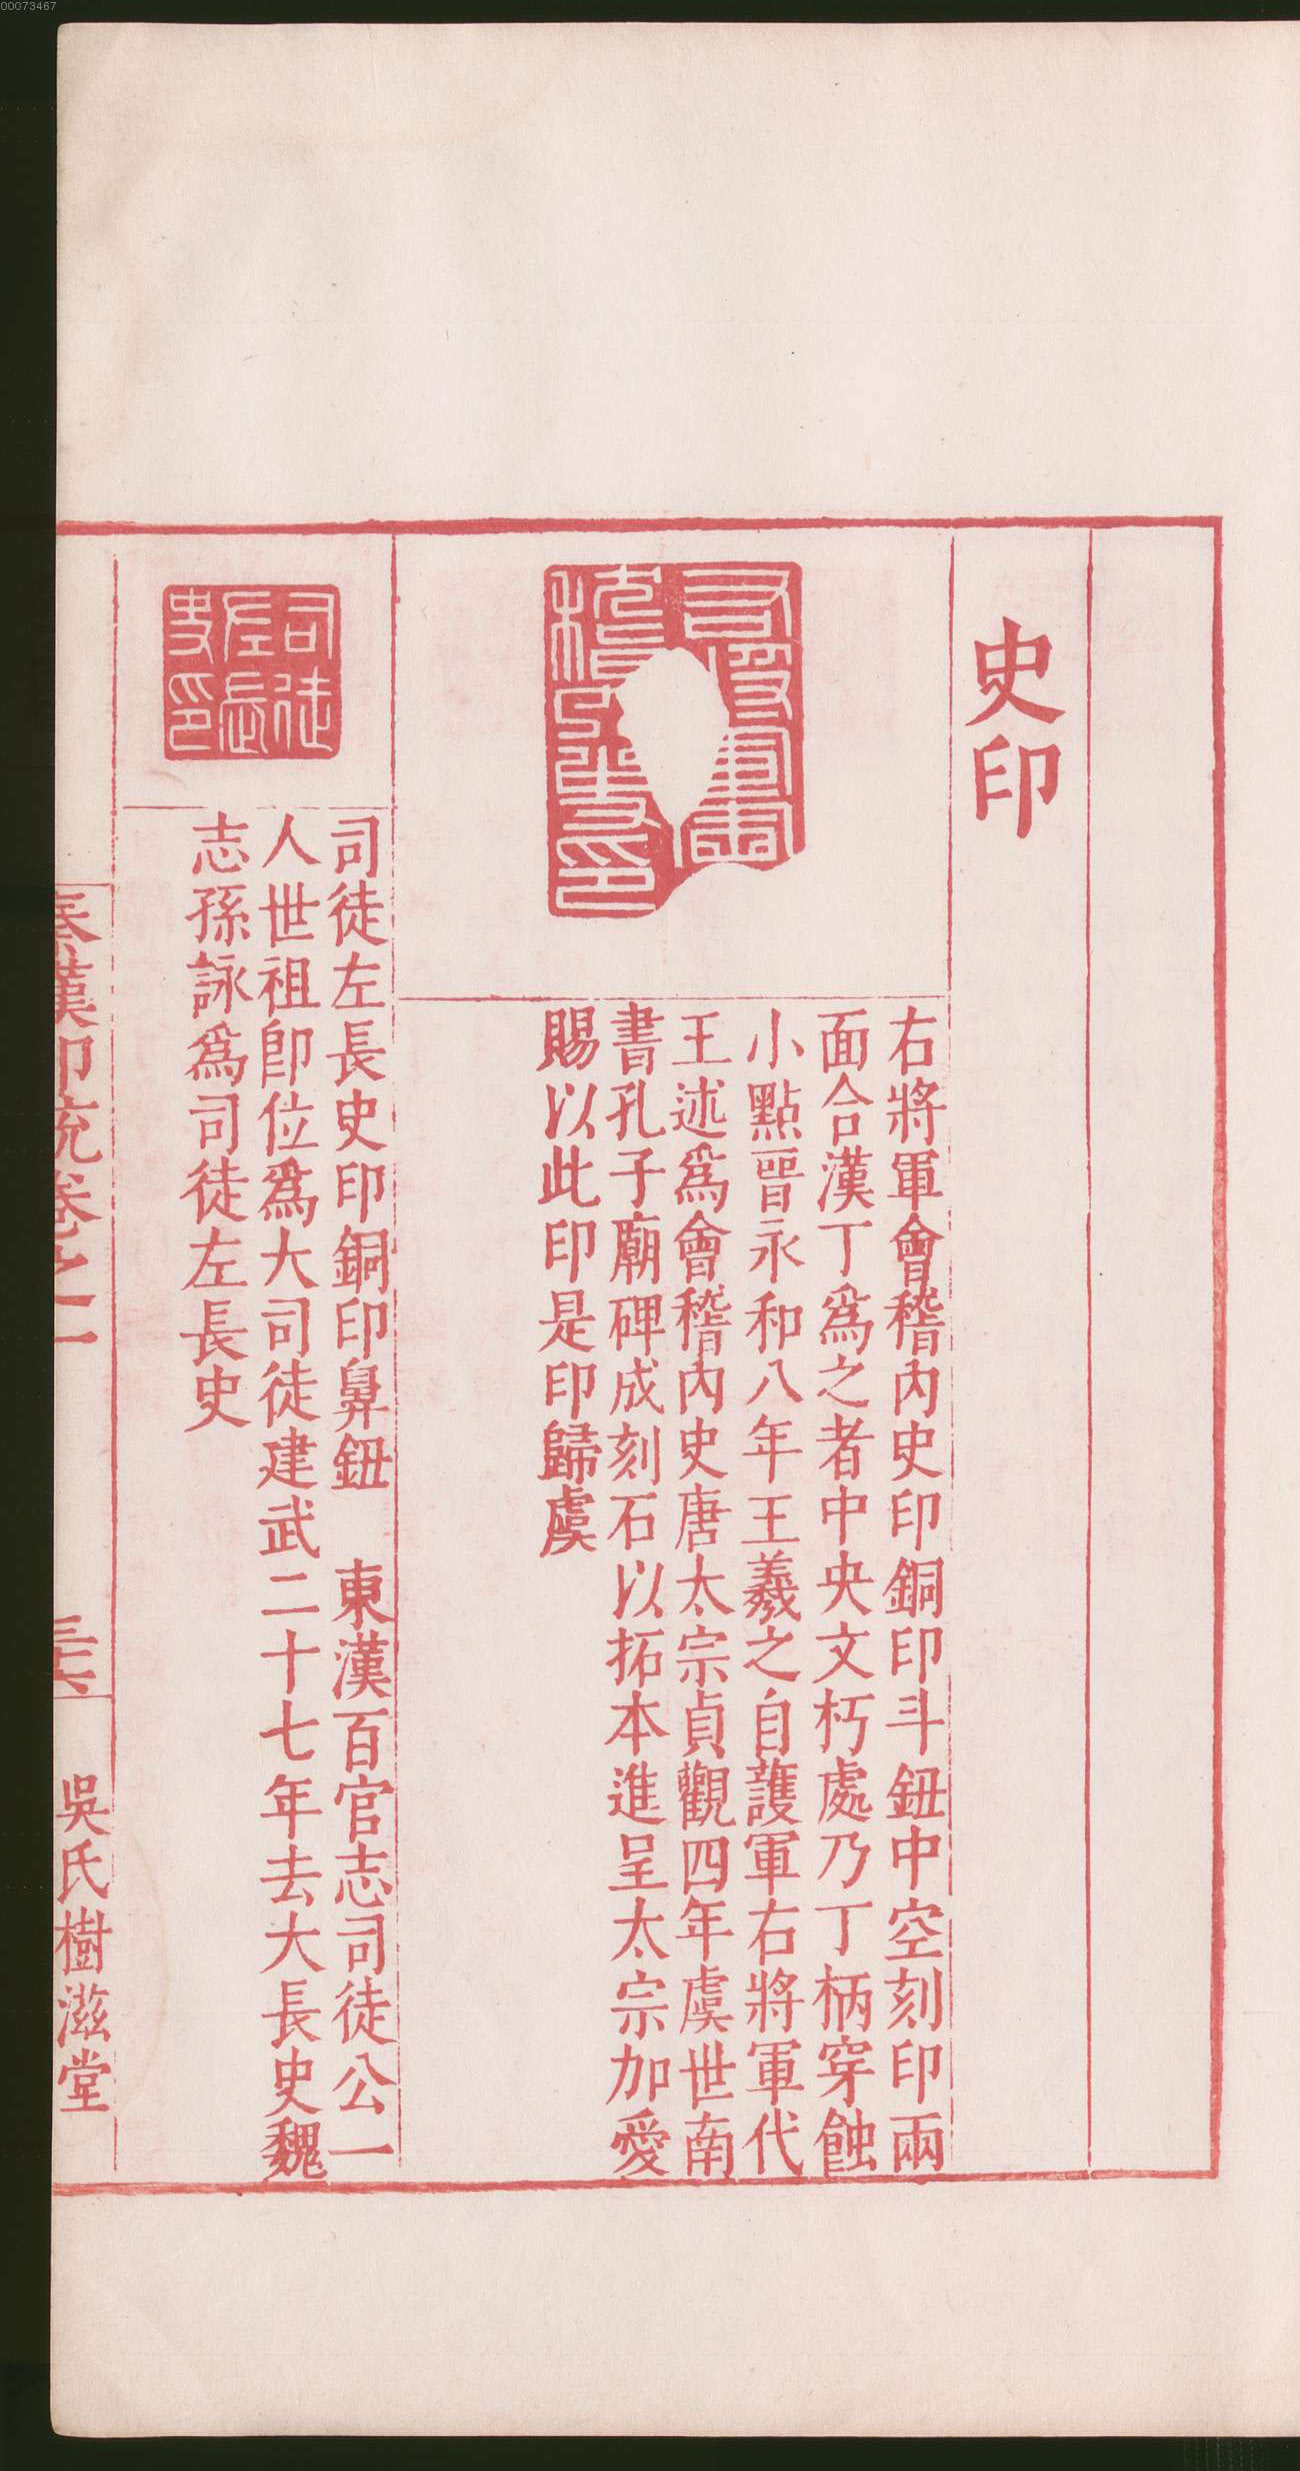 00073467
史印
右將軍會稽內史印
右將軍會稽內史印銅印斗鈕中空刻印兩
面合漢丁爲之者中央文朽處乃丁柄穿蝕
小點晉永和八年王羲之自護軍右將軍代
王述爲會稽內史唐太宗貞觀四年虞世南
書孔子廟碑成刻石以拓本進呈太宗加愛
賜以此印是印歸虞
司徒左長史印
司徒左長史印銅印鼻鈕　東漢百官志司徒公一
人世祖卽位爲大司徒建武二十七年去大長史魏
志孫詠爲司徒左長史
秦漢印統卷之一
吳氏樹滋堂